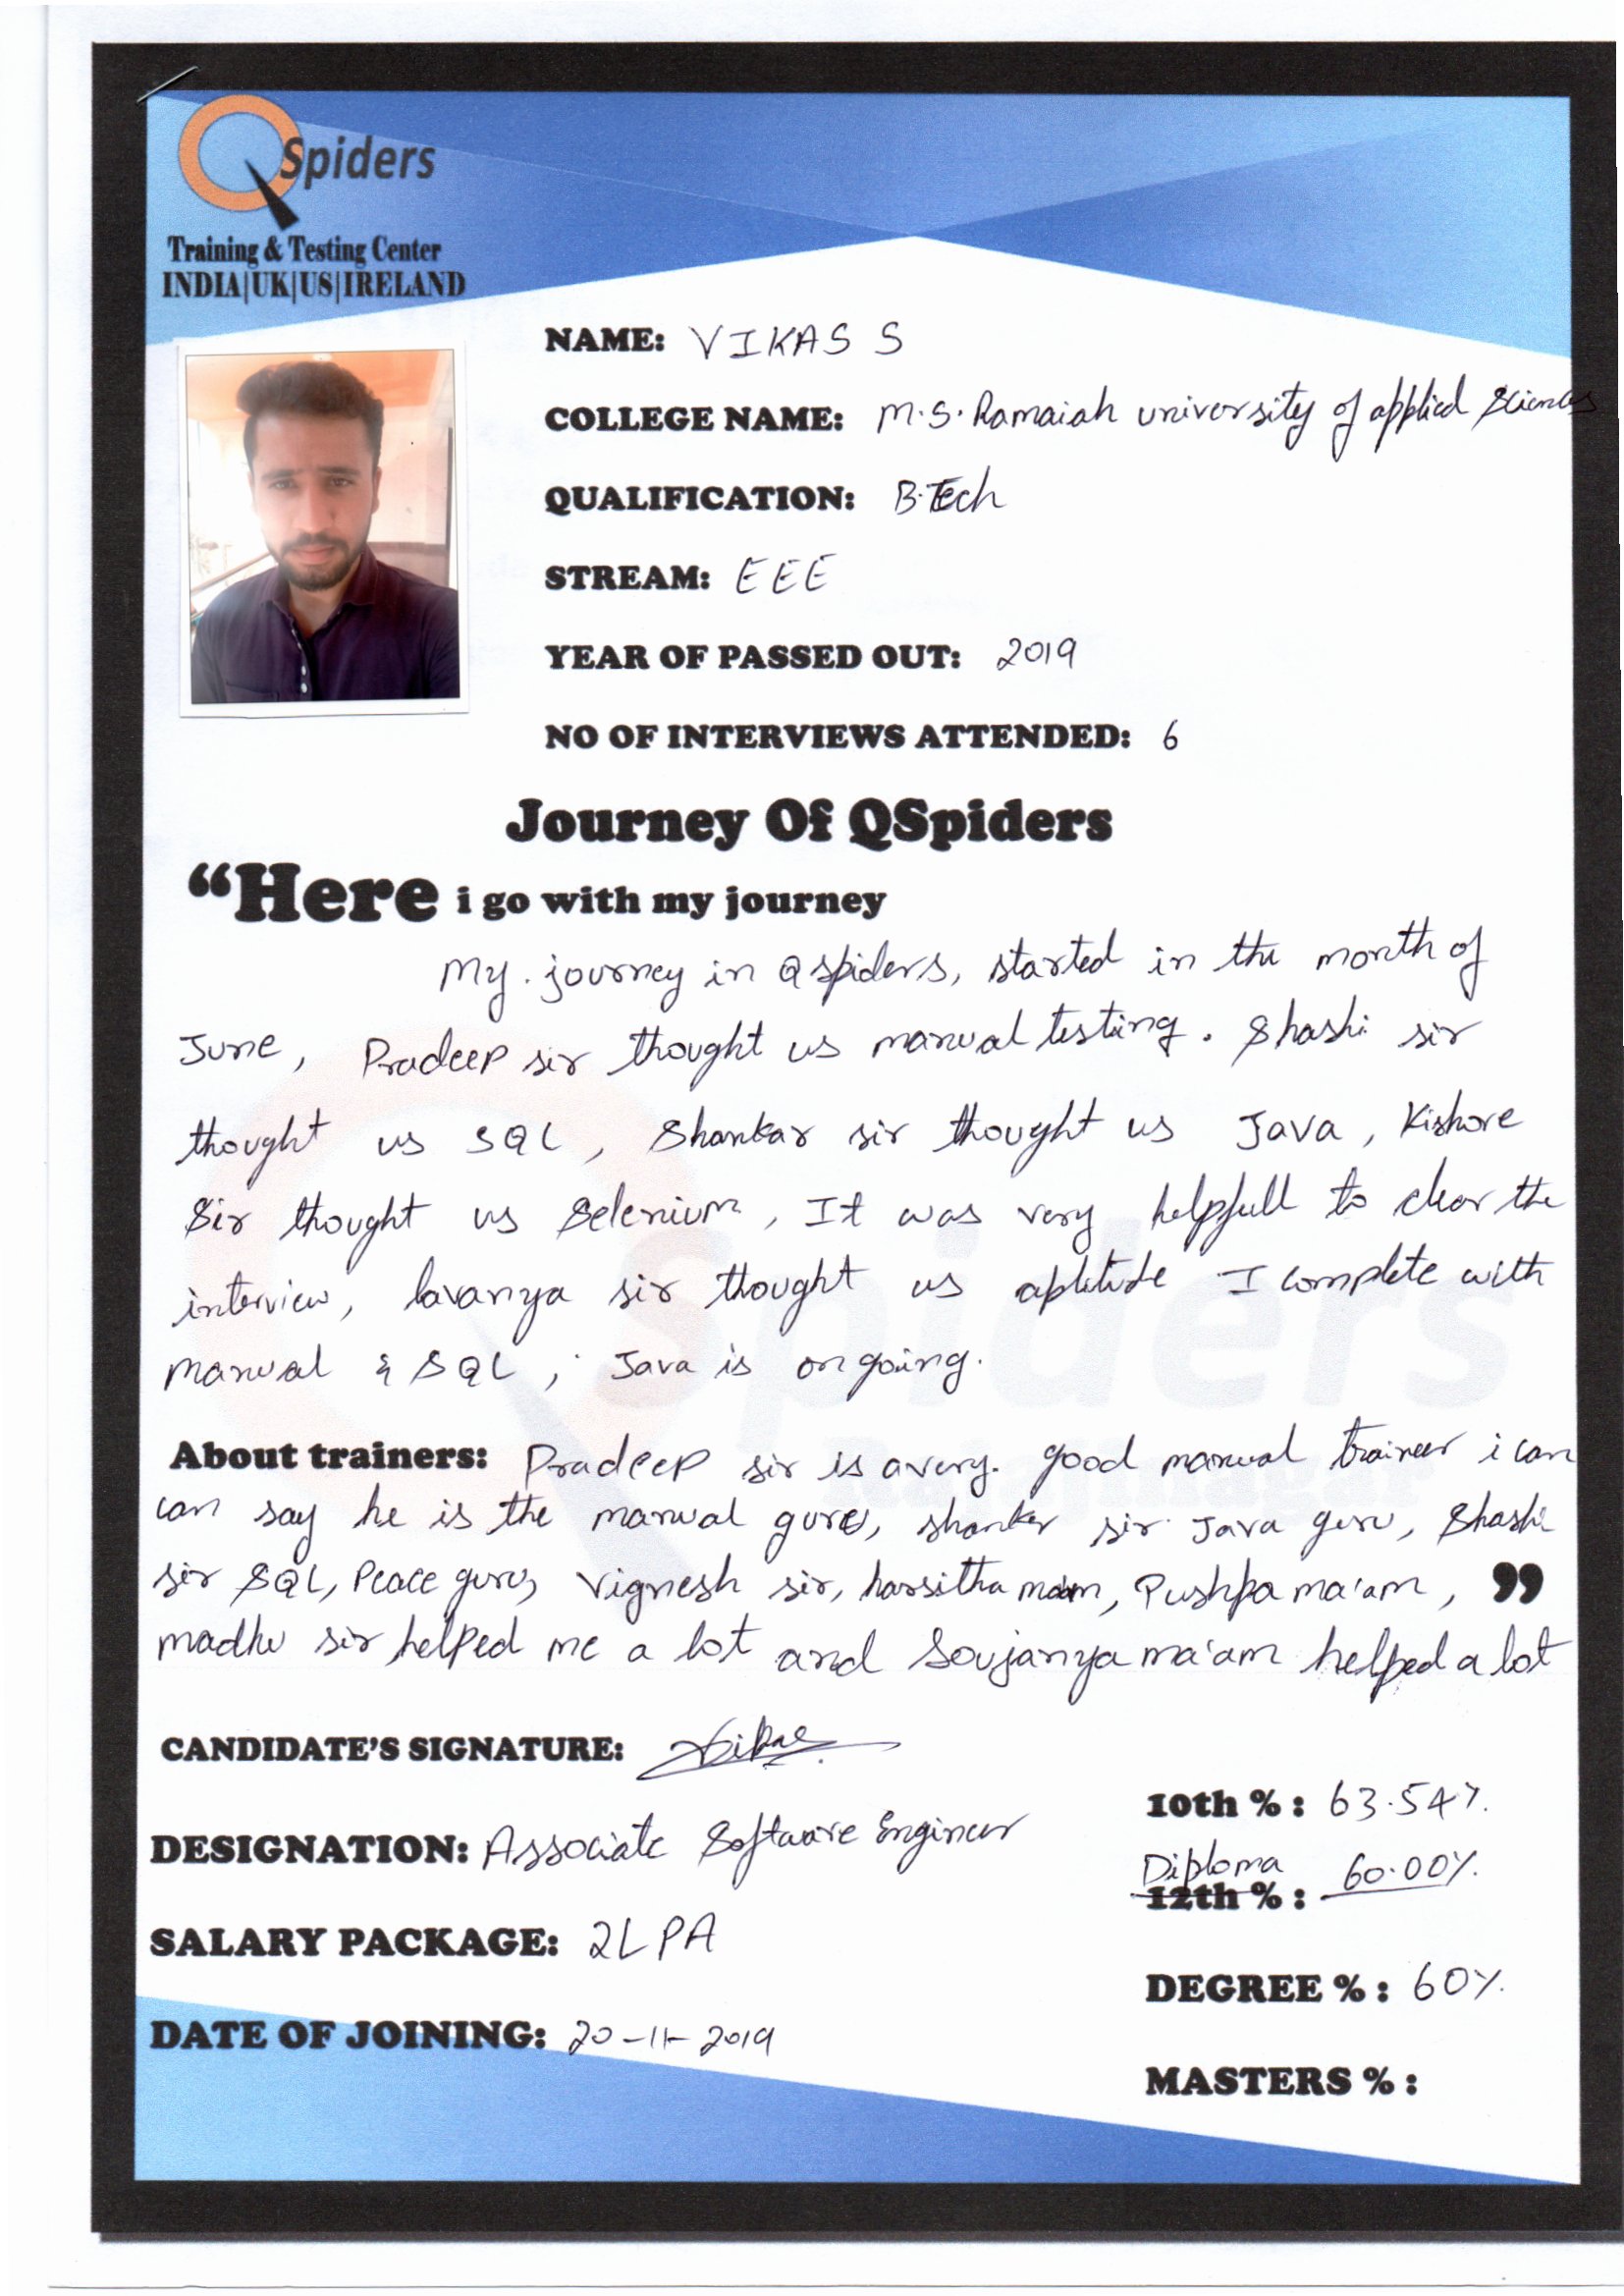 QSpiders
Training & Testing Center
INDIA|UK|US|IRELAND
NAME: VIKAS S
COLLEGE NAME: M.S. Ramaiah university of applied Sciences
QUALIFICATION: B.Tech
STREAM: EEE
YEAR OF PASSED OUT: 2019
NO OF INTERVIEWS ATTENDED: 6
Journey Of QSpiders
“Here i go with my journey
My journey in Qspiders, started in the month of
June, Pradeep sir thought us manual testing. Shashi sir
thought us SQL, Shankar sir thought us Java, Kishore
Sir thought us Selenium, It was very helpfull to clear the
interview, lavanya sir thought us aptitude I complete with
manual & SQL, Java is on going.
About trainers: Pradeep sir is a very. good manual trainer i can
can say he is the manual guru, shanker sir Java guru, Shashi
sir SQL, Peace guru, Vignesh sir, harsitha mam, Pushpa ma'am, ”
madhu sir helped me a lot and Soujanya ma'am helped a lot
CANDIDATE'S SIGNATURE: Vikas
10th % : 63.54%.
DESIGNATION: Associate Software Engineer
Diploma
12th % : 60.00%.
SALARY PACKAGE: 2LPA
DEGREE % : 60%.
DATE OF JOINING: 20-11-2019
MASTERS % :
Spiders